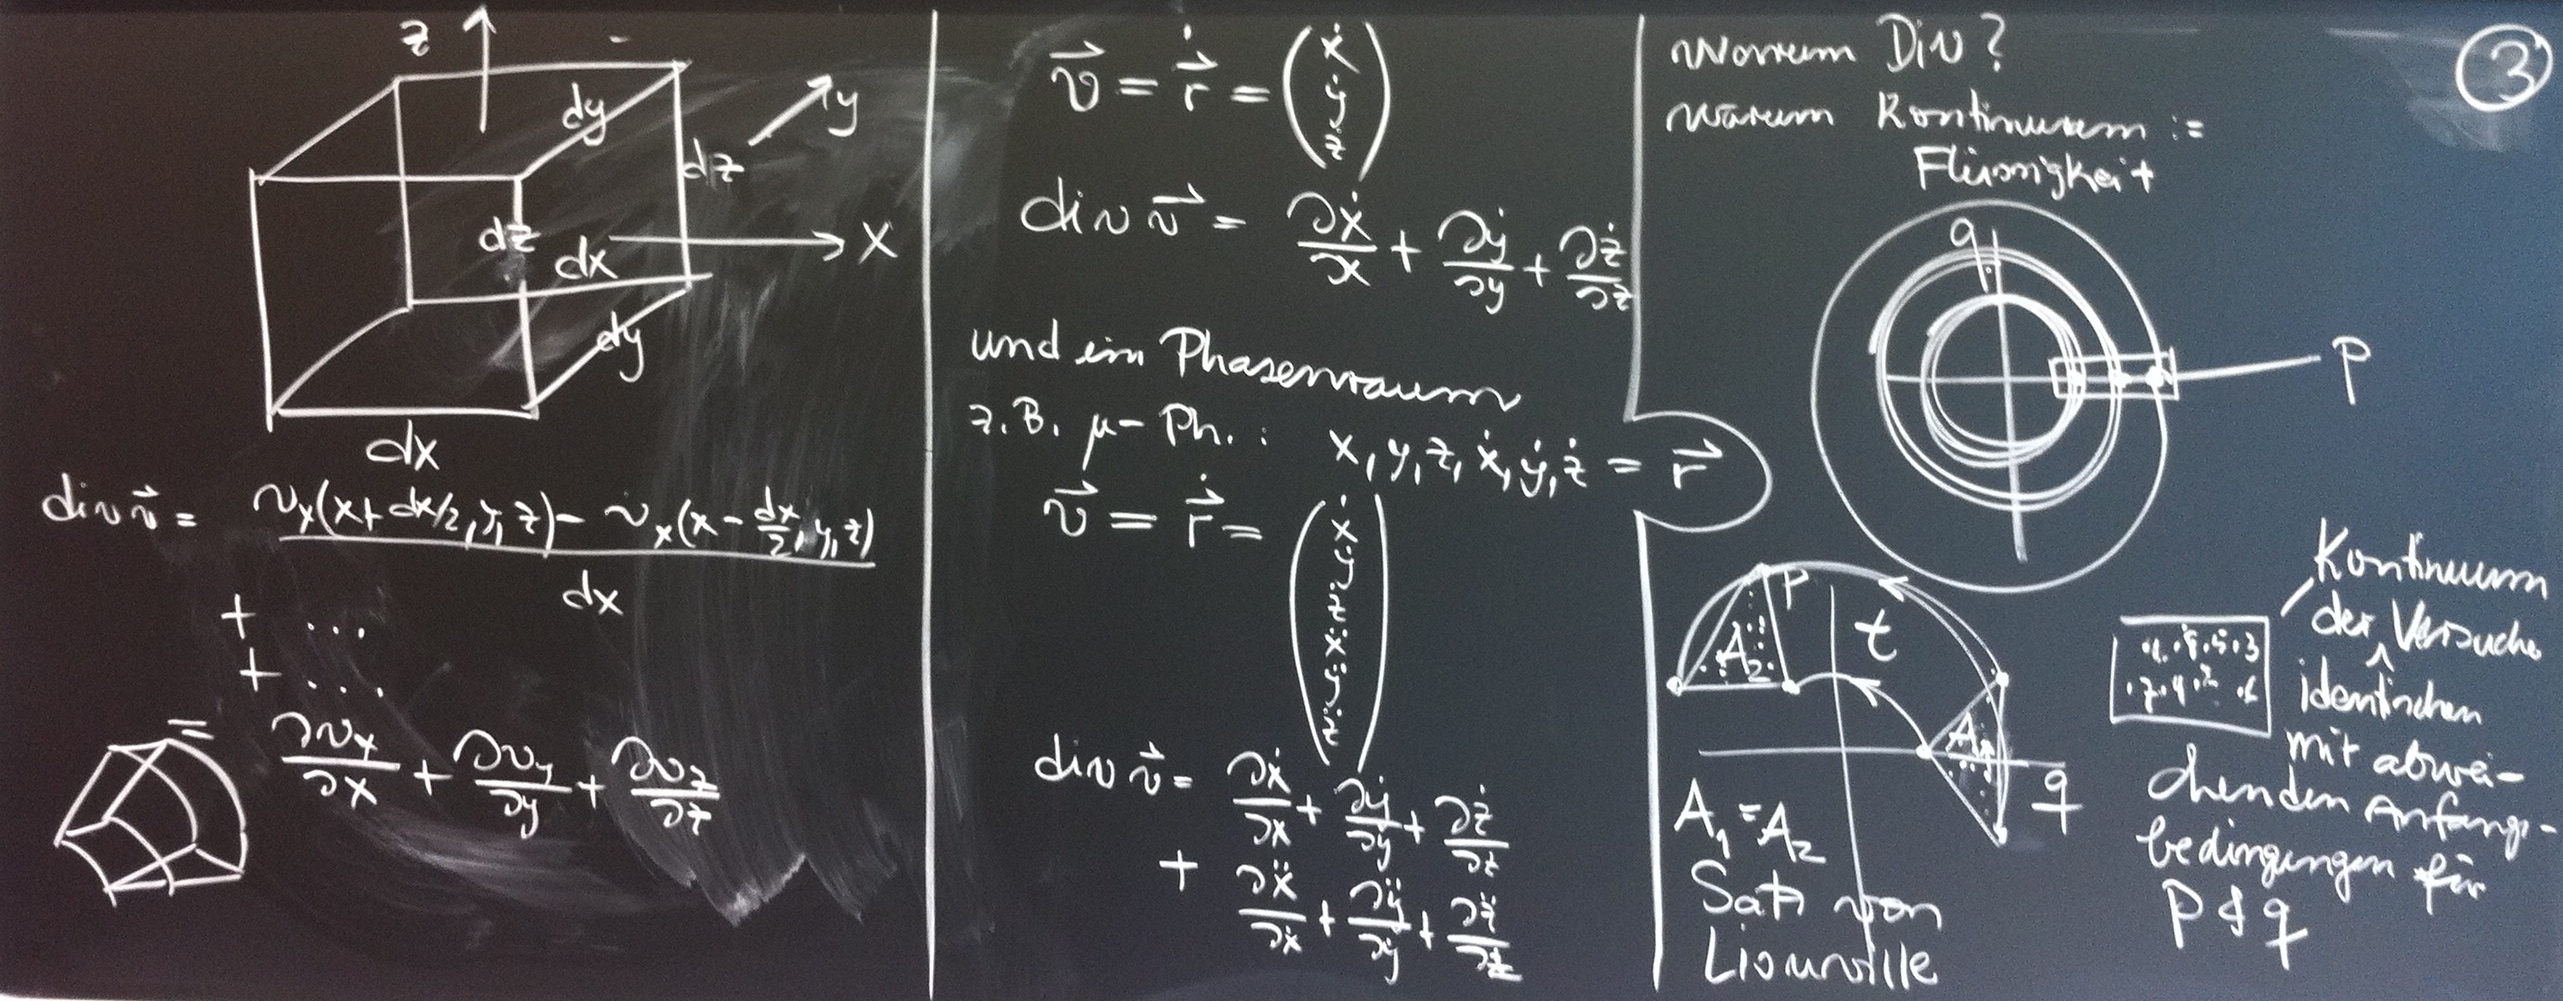 z
dy
y
dz
dz
dx
X
dy
dx
div v⃗ = (v_x(x+dx/2, y, z) - v_x(x - dx/2, y, z)) / dx
+ ...
+ ...
= ∂v_x/∂x + ∂v_y/∂y + ∂v_z/∂z
v⃗ = ṙ⃗ = (ẋ ẏ ż)
div v⃗ = ∂ẋ/∂x + ∂ẏ/∂y + ∂ż/∂z
und im Phasenraum
z.B. μ-Ph.: x, y, z, ẋ, ẏ, ż = r⃗
v⃗ = ṙ⃗ = (ẋ ẏ ż ẍ ÿ z̈)
div v⃗ = ∂ẋ/∂x + ∂ẏ/∂y + ∂ż/∂z
+ ∂ẍ/∂ẋ + ∂ÿ/∂ẏ + ∂z̈/∂ż
Worum Div?
Warum Kontinuum :=
Flüssigkeit
3
q
P
P
t
A₂
A₁
q
A₁ = A₂
Satz von
Liouville
Kontinuum
der Versuche
identischen
mit abwei-
chenden Anfangs-
bedingungen für
P & q